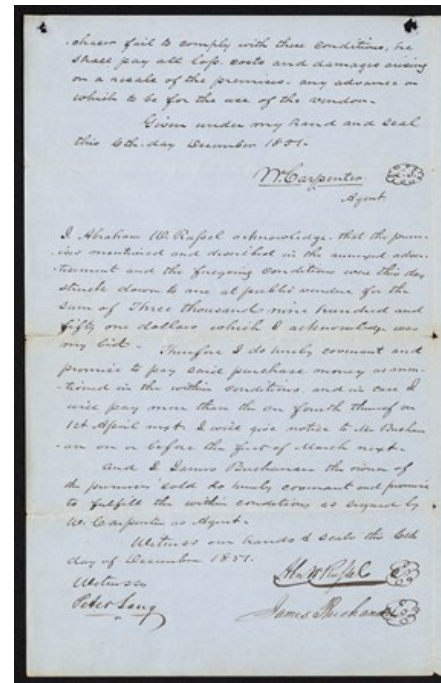 chaser fail to comply with these conditions, he
shall pay all loss, costs and damages arising
on a resale of the premises, any advance on
which to be for the use of the vendor.
Given under my hand and seal
this 6th day December 1851.
W. Carpenter
Agent
I Abraham W. Russel acknowledge that the prem-
-ises mentioned and described in the annexed adver-
-tisement and the foregoing conditions were this day
struck down to me at public vendue for the
sum of Three thousand nine hundred and
fifty one dollars which I acknowledge was
my bid. Therefore I do hereby covenant and
promise to pay said purchase money as men-
-tioned in the within conditions, and in case I
will pay more than the one fourth thereof on
1st April next I will give notice to Mr Buchan-
-an on or before the first of March next.
And I James Buchanan the owner of
the premises sold do hereby covenant and promise
to fulfill the within conditions as signed by
W. Carpenter as Agent.
Witness our hands & seals this 6th
day of December 1851.
Witness
Abm W Russel
Peter Long
James Buchanan